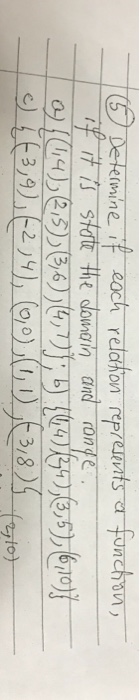 ⑤ Determine if each relation represents a function,
if it is state the domain and range.
a) {(1,4), (2,5), (3,6), (4,7)}; b {(1,4)(2,4), (3,5), (6,10)}
c) {(-3,9), (-2,4), (0,0), (1,1), (-3,8)}
(2,10)